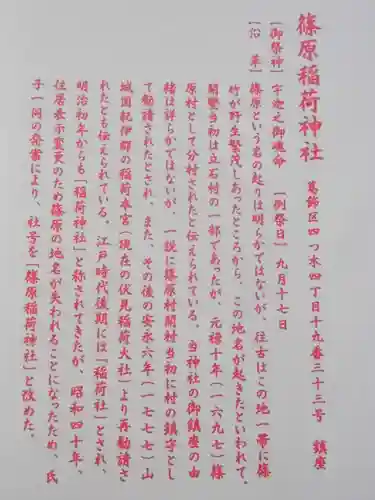 篠原稲荷神社
葛飾区四つ木四丁目十九番三十三号 鎮座
[御祭神] 宇迦之御魂命 [例祭日] 九月十七日
[沿革] 篠原という名の起りは明らかではないが、往古はこの地一帯に篠
竹が野生繁茂しあったところから、この地名が起きたといわれて、
開墾当初は立石村の一部であったが、元禄十年(一六九七)篠
原村として分村されたと伝えられている。当神社の御鎮座の由
緒は詳らかではないが、一説に篠原村開村当初に村の鎮守とし
て勧請されたとされ、また、その後の安永六年(一七七七)山
城国紀伊郡の稲荷本宮(現在の伏見稲荷大社)より再勧請さ
れたとも伝えられている。江戸時代後期には「稲荷社」とされ、
明治初年からも「稲荷神社」と称されてきたが、昭和四十年、
住居表示変更のため篠原の地名が失われることになったため、氏
子一同の発案により、社号を「篠原稲荷神社」と改めた。